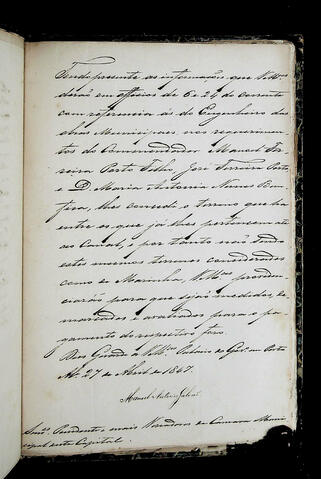 Tendo presente as informações que V.Mces
derão em officios de 6 e 24 do corrente
com referencia ás do Engenheiro das
obras Municipaes, nos requerimen
tos do Commendador Manoel Fer
reira Porto Filho, José Ferreira Porto
e D. Maria Antonia Nunes Bom
fim, lhes concedo o terreno que ha
entre os que já lhes pertencem até
ao Canal, e por tanto não sendo
estes mesmos terrenos considerados
como de Marinha, V.Mces providen
ciarão para que sejão medidos, de
marcados e avaliados para o pa
gamento do respectivo foro.
Deos Guarde a V.Mces Palacio do Gov.º em Porto
Al. 27 de Abril de 1847.
Manoel Antonio Galvão
Snres Presidente e mais Vereadores da Camara Muni
cipal desta Capital.